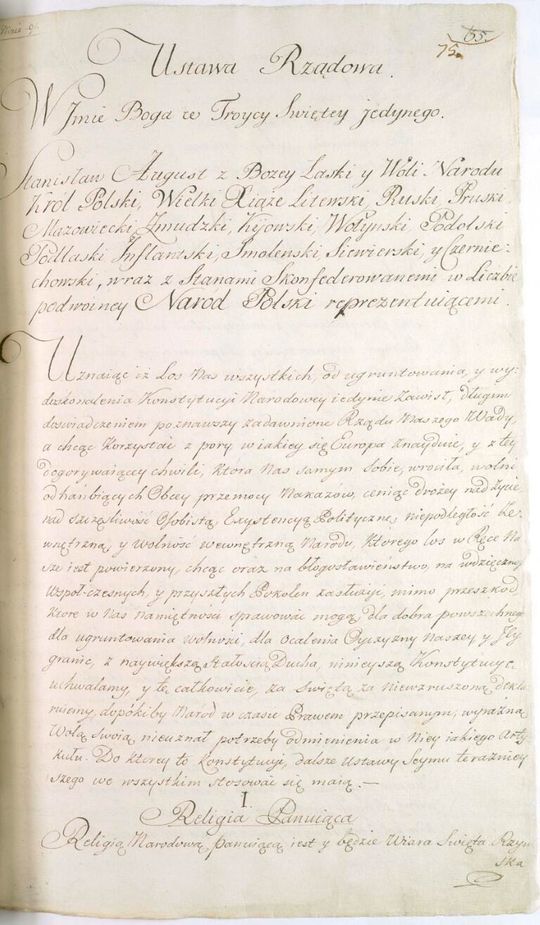 65.
75.
Ustawa Rządowa.
W Jmie Boga w Troycy Swiętey jedynego.
Stanisław August z Bozey Laski y Woli Narodu
Krol Polski, Wielki Xiąze Litewski, Ruski, Pruski,
Mazowiecki, Zmudzki, Kijowski, Wołynski, Podolski
Podlaski Inflantski, Smolenski, Siewierski, y Czernie-
chowski, wraz z Stanami Skonfederowanemi w Liczbie
podwoiney Narod Polski reprezentuiącemi.
Uznaiąc iz Los Nas wszystkich, od ugruntowania, y wy-
doskonalenia Konstytucyi Narodowey iedynie zawisł, długim
doswiadczeniem poznawszy zadawnione Rządu Naszego Wady,
a chcąc korzystac z pory, w iakiey się Europa znayduie, y z tey
dogorywaiącey chwili, ktora Nas samym sobie, wrociła, wolni
od hanbiących Obcey przemocy Nakazow, ceniąc drozey nad zycie,
nad szczęsliwosć Osobistą, Exystencyą Polityczną, niepodległość ze-
wnętrzną, y wolność wewnętrzną Narodu, ktorego los w Ręce Na-
sze iest powierzony, chcąc oraz na błogosławienstwo, na wdzięczność
Wspoł-czesnych, y przyszłych Pokolen zasłuzyć, mimo przeszkod,
ktore w Nas namiętnosci sprawować mogą, dla dobra powszechnego
dla ugruntowania wolnosci, dla ocalenia Oyczyzny Naszey y Jey
granic, z naywiększą Stałoscią Ducha, ninieyszą Konstytucyę
uchwalamy, y tę całkowicie, za Swiętą, za Niewzruszoną dekla-
ruiemy, dopokiby Narod w czasie Prawem przepisanym, wyrazną
Wolą Swoią nieuznał potrzeby odmienienia w Niey iakiego Arty-
kułu. Do ktorey to Konstytucyi, dalsze Ustawy Seymu terazniey-
szego we wszystkim stosować się maią. —
I.
Religia Panuiąca
Religią Narodową panuiącą iest y będzie Wiara Swięta Rzym-
ska